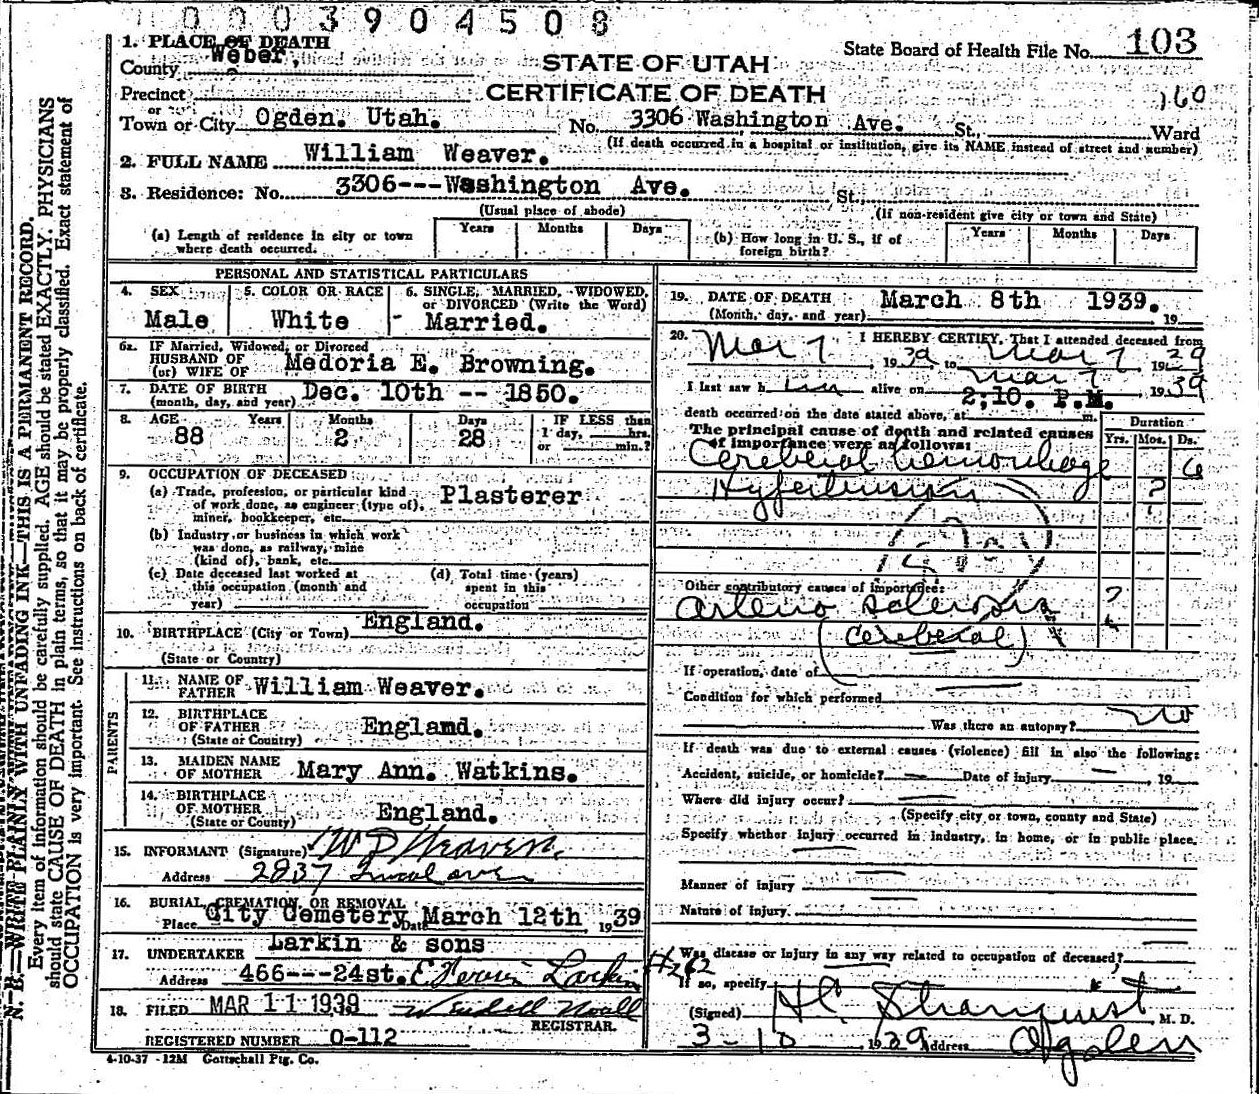 0003904508
1. PLACE OF DEATH
County Weber,
STATE OF UTAH
State Board of Health File No. 103
Precinct
CERTIFICATE OF DEATH
160
or
Town or City Ogden. Utah. No. 3306 Washington Ave. St., Ward
(If death occurred in a hospital or institution, give its NAME instead of street and number)
2. FULL NAME William Weaver.
3. Residence: No. 3306---Washington Ave. St.
(Usual place of abode) (If non-resident give city or town and State)
(a) Length of residence in city or town where death occurred. Years Months Days
(b) How long in U. S., if of foreign birth? Years Months Days
PERSONAL AND STATISTICAL PARTICULARS
4. SEX Male
5. COLOR OR RACE White
6. SINGLE, MARRIED, WIDOWED, or DIVORCED (Write the Word) Married.
6a. IF Married, Widowed, or Divorced
HUSBAND OF
(or) WIFE OF Medoria E. Browning.
7. DATE OF BIRTH
(month, day, and year) Dec. 10th -- 1850.
8. AGE Years Months Days IF LESS than
88 2 28 1 day, hrs.
or min.?
9. OCCUPATION OF DECEASED
(a) Trade, profession, or particular kind
of work done, as engineer (type of),
miner, bookkeeper, etc. Plasterer
(b) Industry or business in which work
was done, as railway, mine
(kind of), bank, etc.
(c) Date deceased last worked at
this occupation (month and
year)
(d) Total time (years)
spent in this
occupation
10. BIRTHPLACE (City or Town) England.
(State or Country)
PARENTS
11. NAME OF
FATHER William Weaver.
12. BIRTHPLACE
OF FATHER England.
(State or Country)
13. MAIDEN NAME
OF MOTHER Mary Ann. Watkins.
14. BIRTHPLACE
OF MOTHER England.
(State or County)
15. INFORMANT (Signature) W P Weaver.
Address 2837
16. BURIAL, CREMATION, OR REMOVAL
Place City Cemetery Date March 12th, 1939
17. UNDERTAKER Larkin & sons
Address 466---24st. Larkin #262
18. FILED MAR 11 1939 Noall
REGISTRAR.
REGISTERED NUMBER 0-112
4-10-37 -12M Gottschall Ptg. Co.
19. DATE OF DEATH March 8th 1939.
(Month, day, and year) 19
20. I HEREBY CERTIFY, That I attended deceased from
Mar 7 1939 to Mar 7 1939
I last saw him alive on Mar 7 1939
death occurred on the date stated above, at 2:10. P.M. m.
The principal cause of death and related causes
of importance were as follows:
Duration
Yrs. Mos. Ds.
Cerebral hemorrhage 6
Hypertension ?
Other contributory causes of importance:
Arterio sclerosis ?
(cerebral)
If operation, date of
Condition for which performed
Was there an autopsy? No
If death was due to external causes (violence) fill in also the following:
Accident, suicide, or homicide? Date of injury 19
Where did injury occur?
(Specify city or town, county and State)
Specify whether injury occurred in industry, in home, or in public place.
Manner of injury
Nature of injury.
Was disease or injury in any way related to occupation of deceased?
If so, specify
(Signed) Stranquist M. D.
3-10 1939 Address Ogden
N. B.—WRITE PLAINLY WITH UNFADING INK—THIS IS A PERMANENT RECORD.
Every item of information should be carefully supplied. AGE should be stated EXACTLY. PHYSICIANS
should state CAUSE OF DEATH in plain terms, so that it may be properly classified. Exact statement of
OCCUPATION is very important. See instructions on back of certificate.